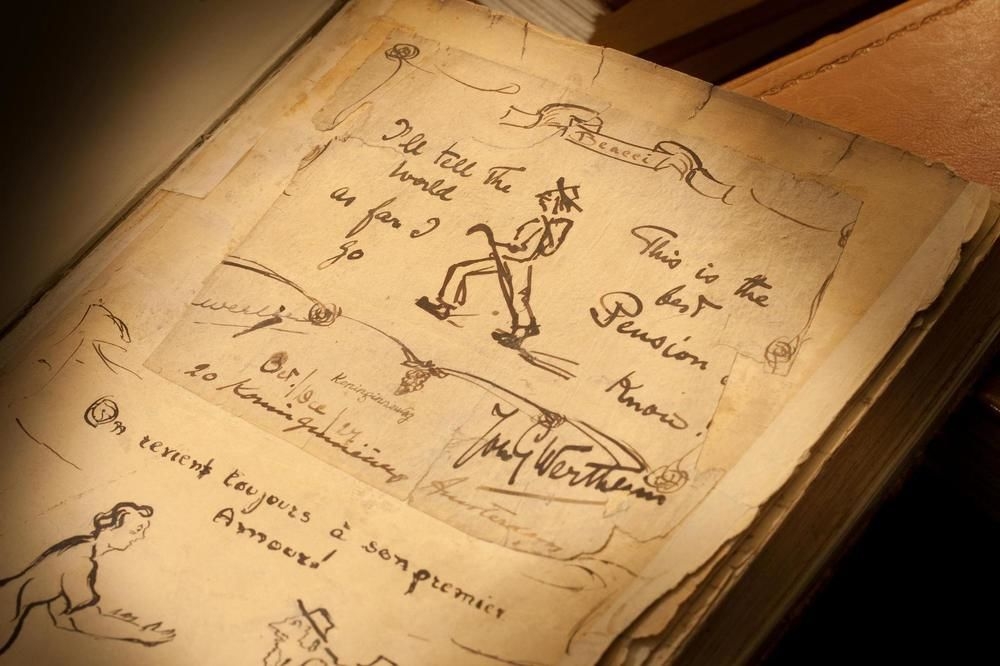 Beacci
I'll tell the
World
as far I
go
This is the
best
Pension
Know!
weekly
Oct/Dec '27
Koninginneweg
20 Koninginneweg
Amsterdam
On revient toujours à son premier
Amour!